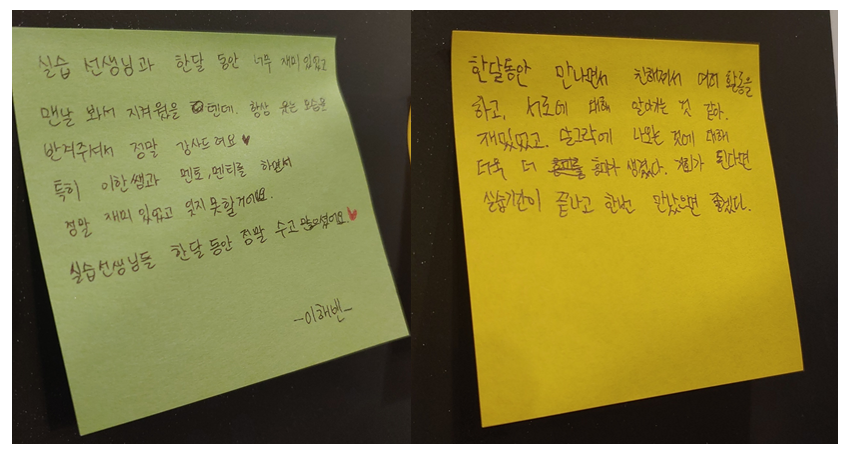 실습 선생님과 한달 동안 너무 재미있었고
맨날 봐서 지겨웠을 텐데. 항상 웃는 모습을
반겨주셔서 정말 감사드려요♥
특히 이한쌤과 멘토,멘티를 하면서
정말 재미있었고 잊지못할거예요.
실습선생님들 한달동안 정말 수고많으셨어요♥
-이해빈-
한달동안 만나면서 친해져서 여러 활동을
하고, 서로에 대해 알아가는 것 같아.
재밌었고. 달그락에 나오는 것에 대해
더욱 더 흥미가 생겼다. 기회가 된다면
실습기간이 끝나고 한번 만났으면 좋겠다.